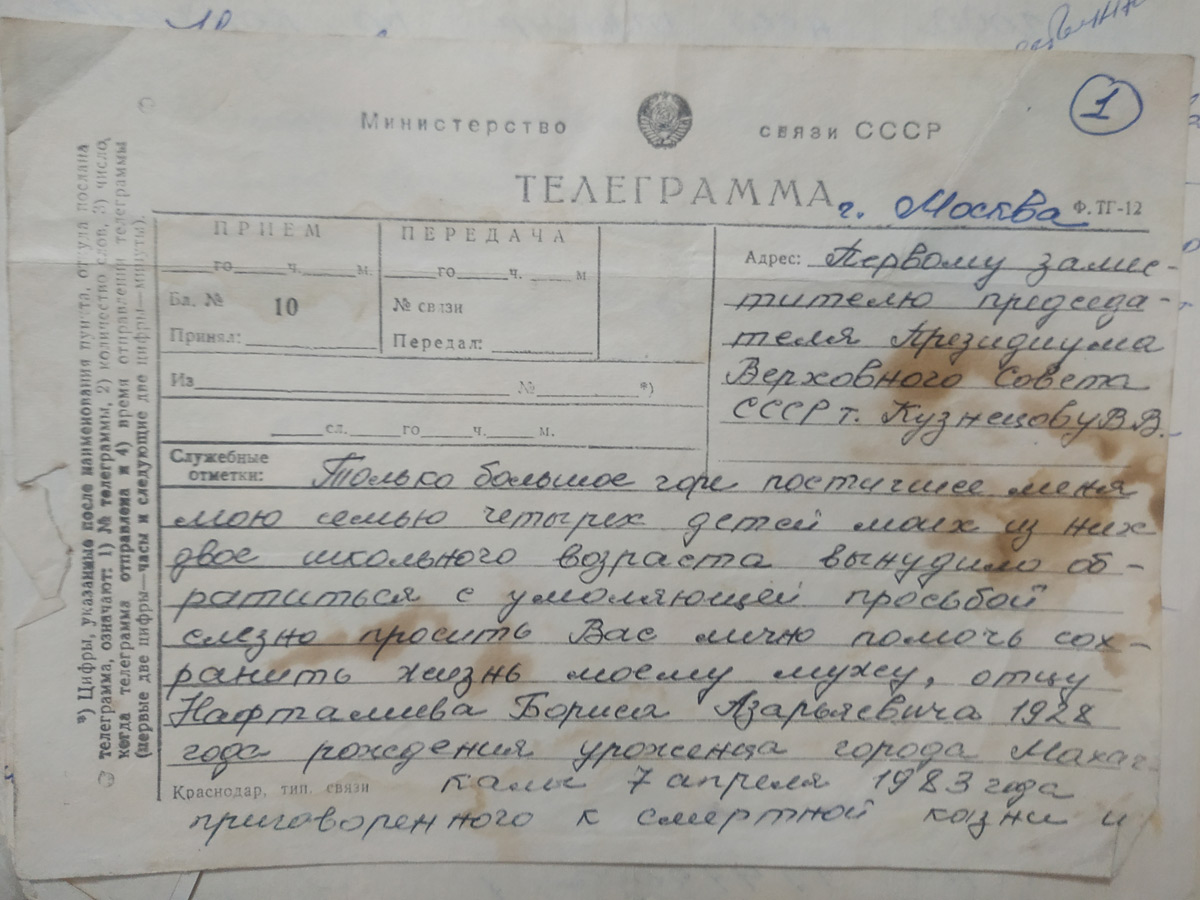 1
Министерство связи СССР
ТЕЛЕГРАММА
г. Москва Ф. ТГ-12
ПРИЕМ
го ч. м.
Бл. № 10
Принял:
ПЕРЕДАЧА
го ч. м
№ связи
Передал:
Из № *)
сл. го ч. м.
Служебные
отметки:
Адрес: Первому замес-
тителю председа-
теля Президиума
Верховного Совета
СССР т. Кузнецову В.В.
Только большое горе постигшее меня
мою семью четырех детей моих из них
двое школьного возраста вынудило об-
ратиться с умоляющей просьбой
слезно просить Вас лично помочь сох-
ранить жизнь моему мужу, отцу
Нафталиева Бориса Азарьяевича 1928
года рождения уроженца города Махач-
калы 7 апреля 1983 года
приговоренного к смертной казни и
Краснодар, тип. связи
*) Цифры, указанные после наименования пункта, откуда послана
телеграмма, означают: 1) № телеграммы, 2) количество слов, 3) число,
когда телеграмма отправлена и 4) время отправления телеграммы
(первые две цифры—часы и следующие две цифры—минуты).